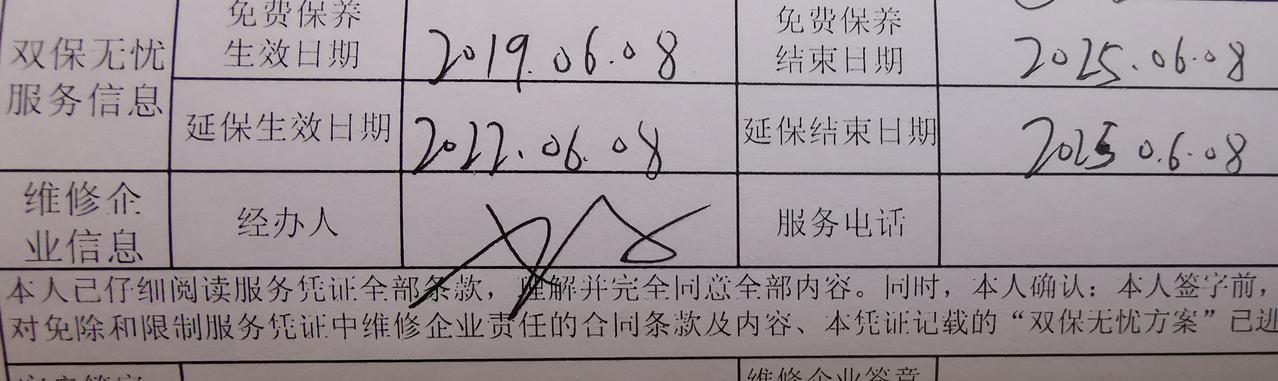 双保无忧
服务信息
免费保养
生效日期
2019.06.08
免费保养
结束日期
2025.06.08
延保生效日期
2022.06.08
延保结束日期
2025 0.6.08
维修企
业信息
经办人
服务电话
本人已仔细阅读服务凭证全部条款，理解并完全同意全部内容。同时，本人确认：本人签字前，
对免除和限制服务凭证中维修企业责任的合同条款及内容、本凭证记载的“双保无忧方案”已进
维修企业签章